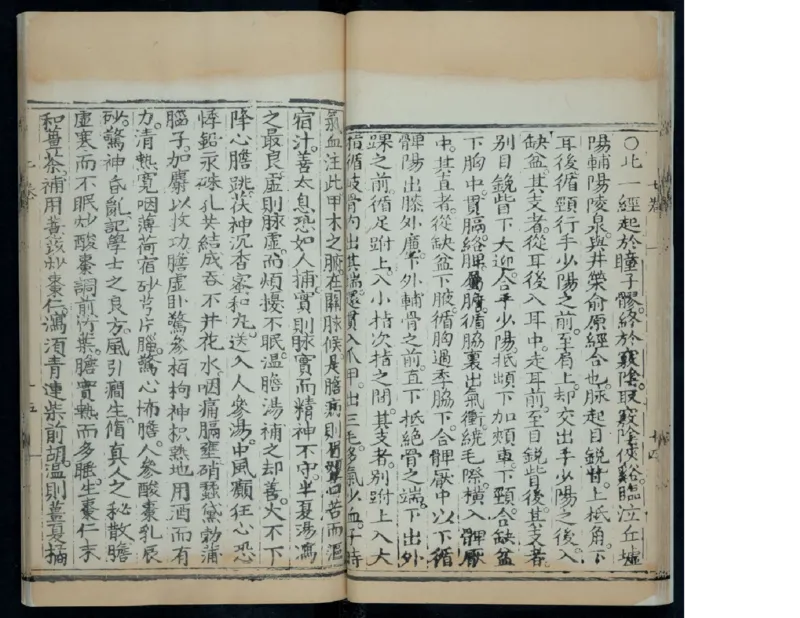 〇此一經起於瞳子髎。終於竅陰。取竅陰俠谿臨泣丘墟
陽輔陽陵泉。與井榮俞原經合也。脉起目銳眥。上抵角。下
耳後。循頸行手少陽之前。至肩上。却交出手少陽之後。入
缺盆。其支者。從耳後入耳中。走耳前。至目銳眥後。其支者
別目銳眥下大迎。合手少陽抵䪼。下加頰車。下頸合缺盆
下胸中。貫膈絡脾屬膽。循脇裏出氣衝。繞毛際。横入髀厭
中。其直者。從缺盆下腋。循胸過季脇下。合髀厭中。以下循
髀陽出膝外廉。下外輔骨之前。直下抵絶骨之端。下出外
踝之前。循足跗上。入小指次指之間。其支者。別跗上入大
指。循歧骨内出其端。還貫入爪甲。出三毛。多氣少血。子時
氣血注此。甲木之臟。在關脉候。是膽病則眉顰口苦而漚
宿汁。善太息。恐如人捕。實則脉實而精神不守。半夏湯瀉
之最良。虛則脉虛而煩擾不眠。溫膽湯補之却善。火不下
降心膽跳。茯神沉香蜜和丸。送入人參湯。中風癲狂心恐
悸。鉛汞硃乳共結成。吞不井花水。咽痛膈壅硝蚕黛勃蒲
腦子。加麝以收功。膽虛卧驚參栢枸神枳熟地用酒而有
力。清熱寬咽薄荷宿砂芎片腦。驚心怖膽。人參酸棗乳辰
砂。驚神昏亂。記學士之良方。風引癎生。脩真人之秘散。膽
虛寒而不眠。炒酸棗調煎竹葉。膽實熱而多睡。生棗仁末
和薑茶。補用黃芪炒棗仁。瀉須青連柴前胡。溫則薑夏橘